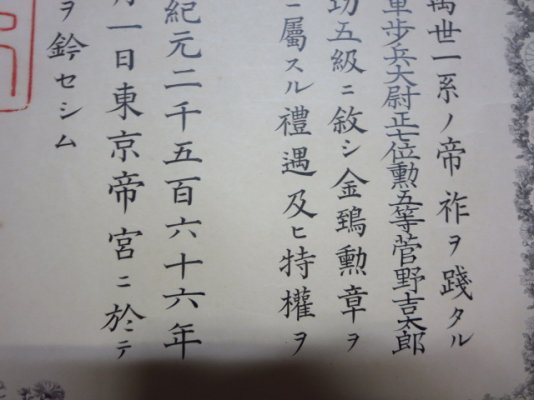 萬世一系ノ帝祚ヲ踐タル
軍步兵大尉正七位勲五等菅野吉太郎
功五級ニ敘シ金鵄勲章ヲ
ニ屬スル禮遇及ヒ特權ヲ
紀元二千五百六十六年
月一日東京帝宮ニ於テ
ヲ鈐セシム